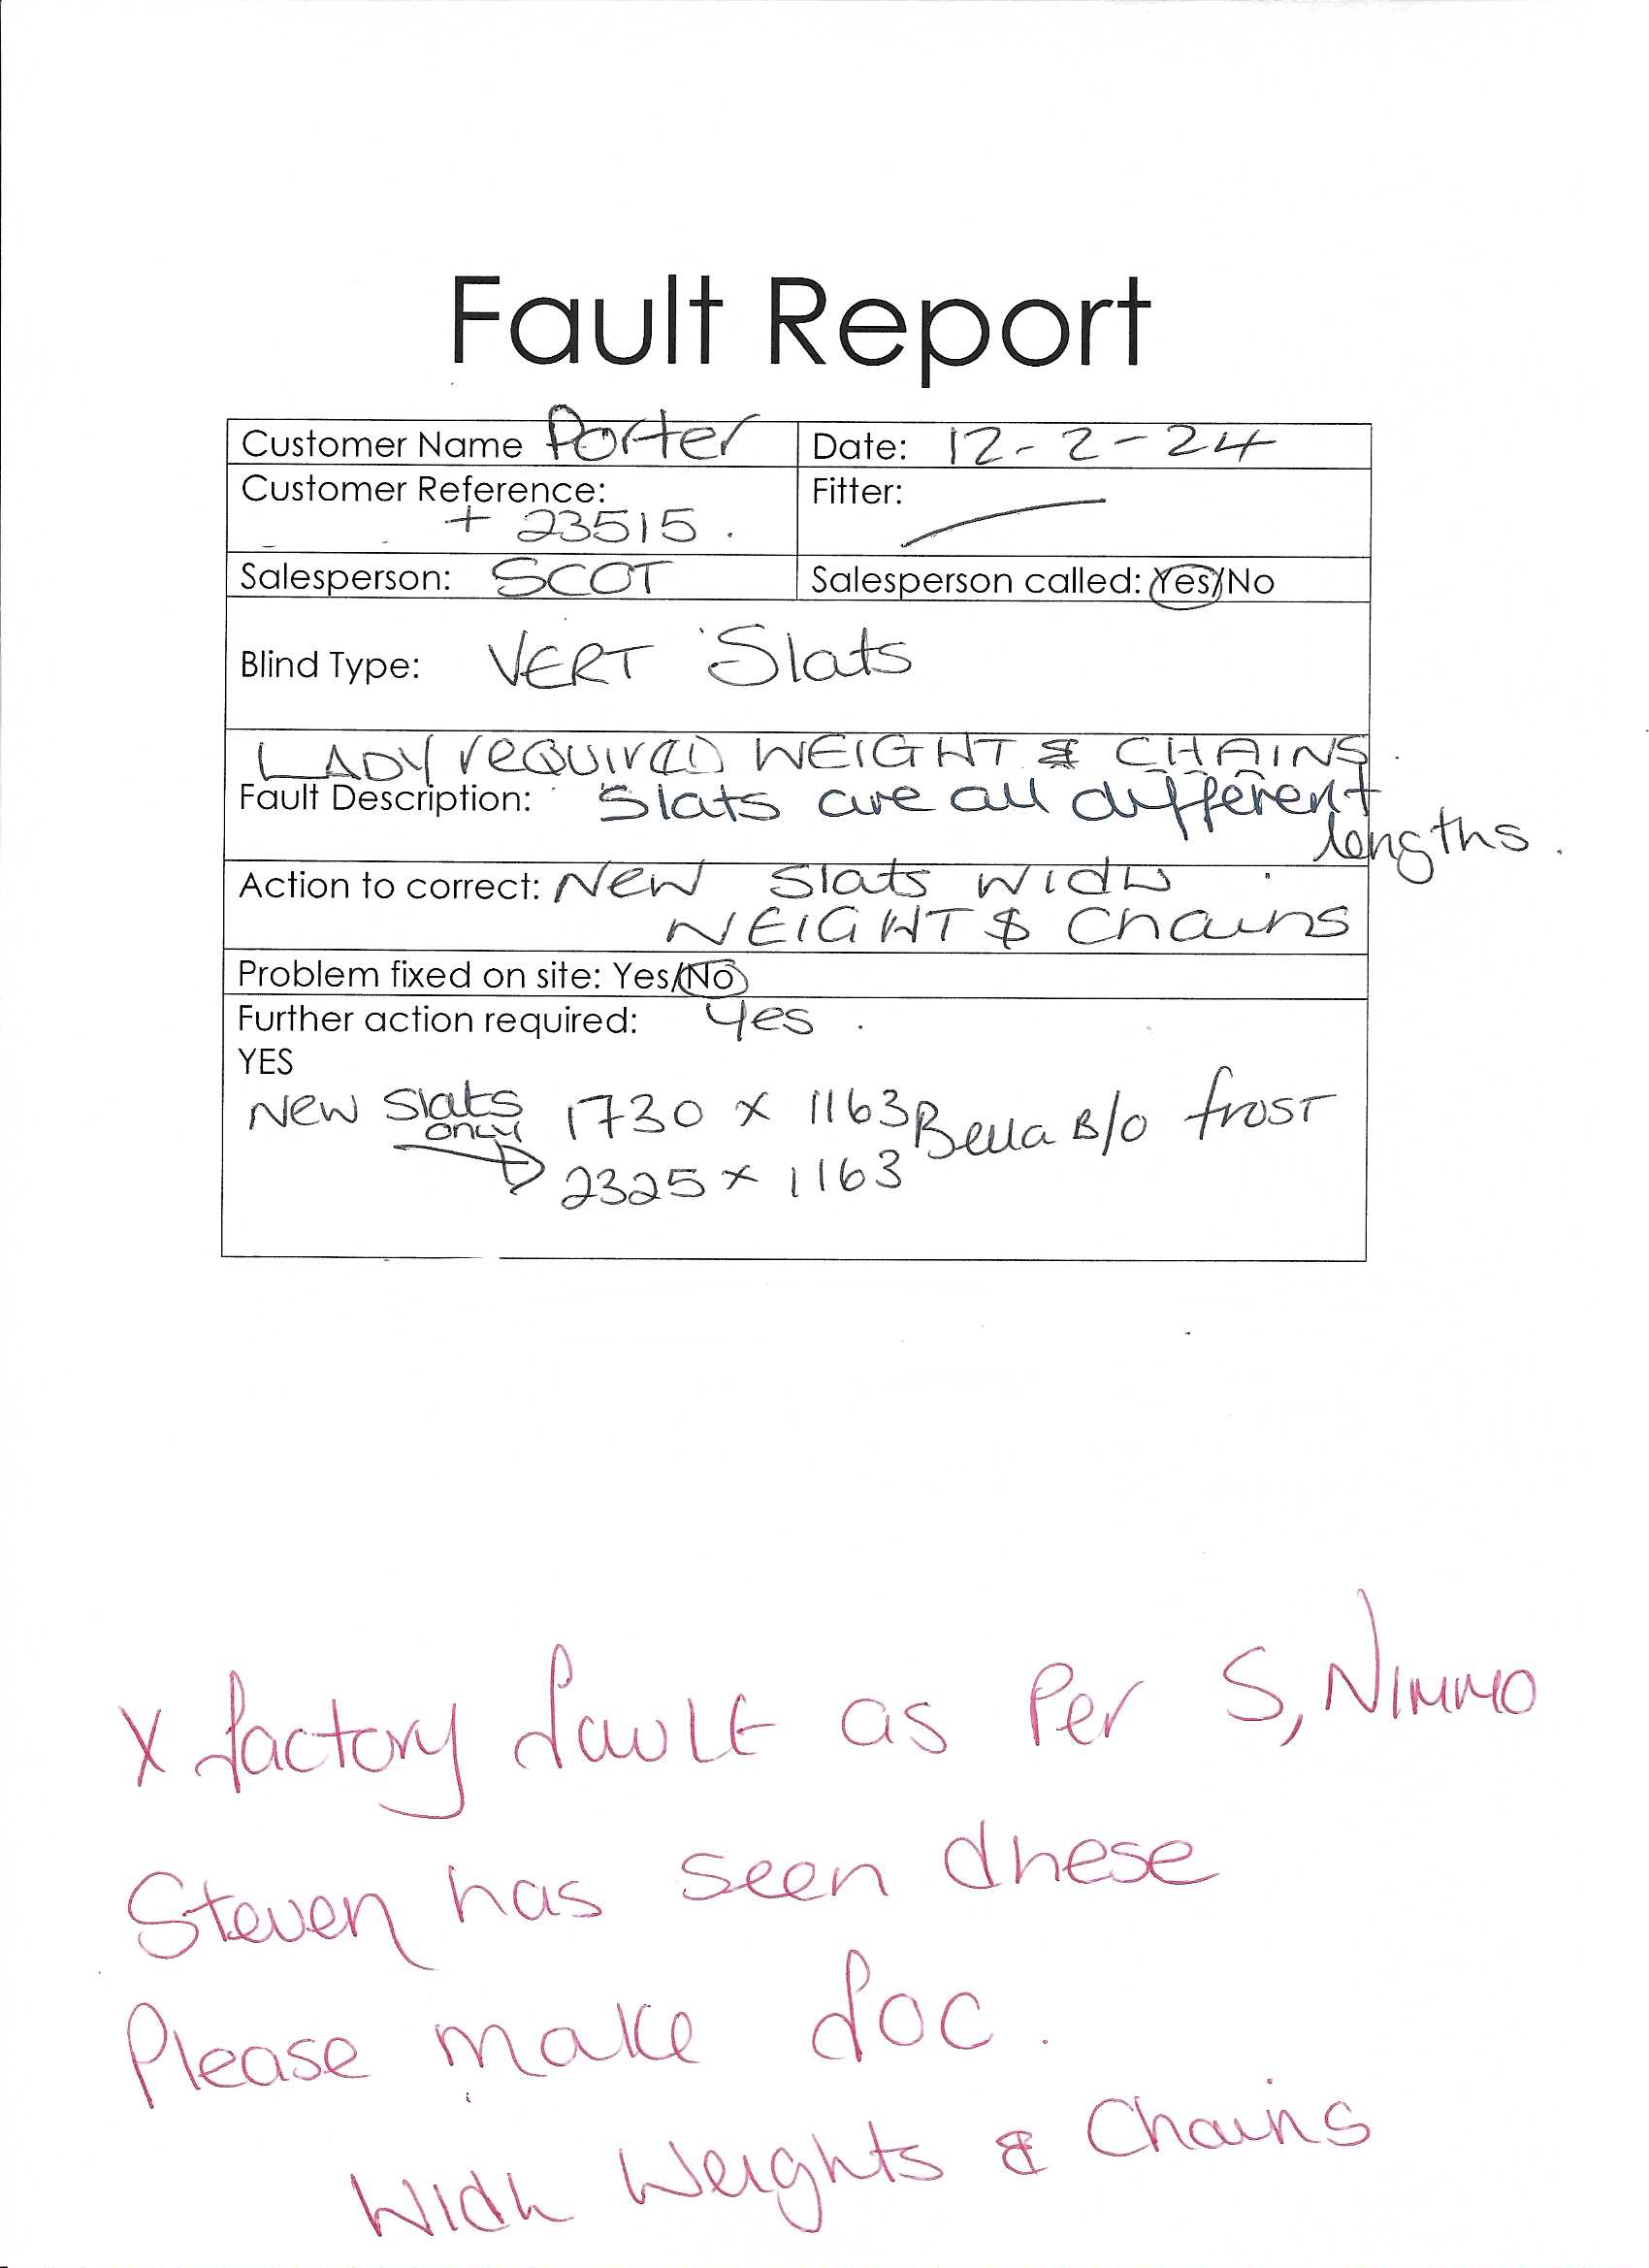 Fault Report
Customer Name Porter Date: 12-2-24
Customer Reference: Fitter:
+ 23515.
Salesperson: SCOT Salesperson called: Yes/No
Blind Type: VERT Slats
LADY required WEIGHT & CHAINS.
Fault Description: Slats are all different
lengths.
Action to correct: New Slats with
WEIGHT & Chains
Problem fixed on site: Yes/No
Further action required: Yes.
YES
New Slats 1730 x 1163 Bella B/O frost
only
2325 x 1163
X factory fault as Per S, Nimmo
Steven has seen these
Please make foc.
With Weights & Chains